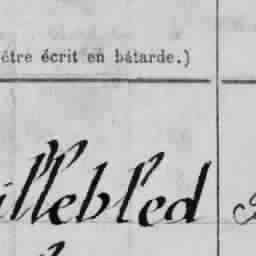 être écrit en bâtarde.)
illebled